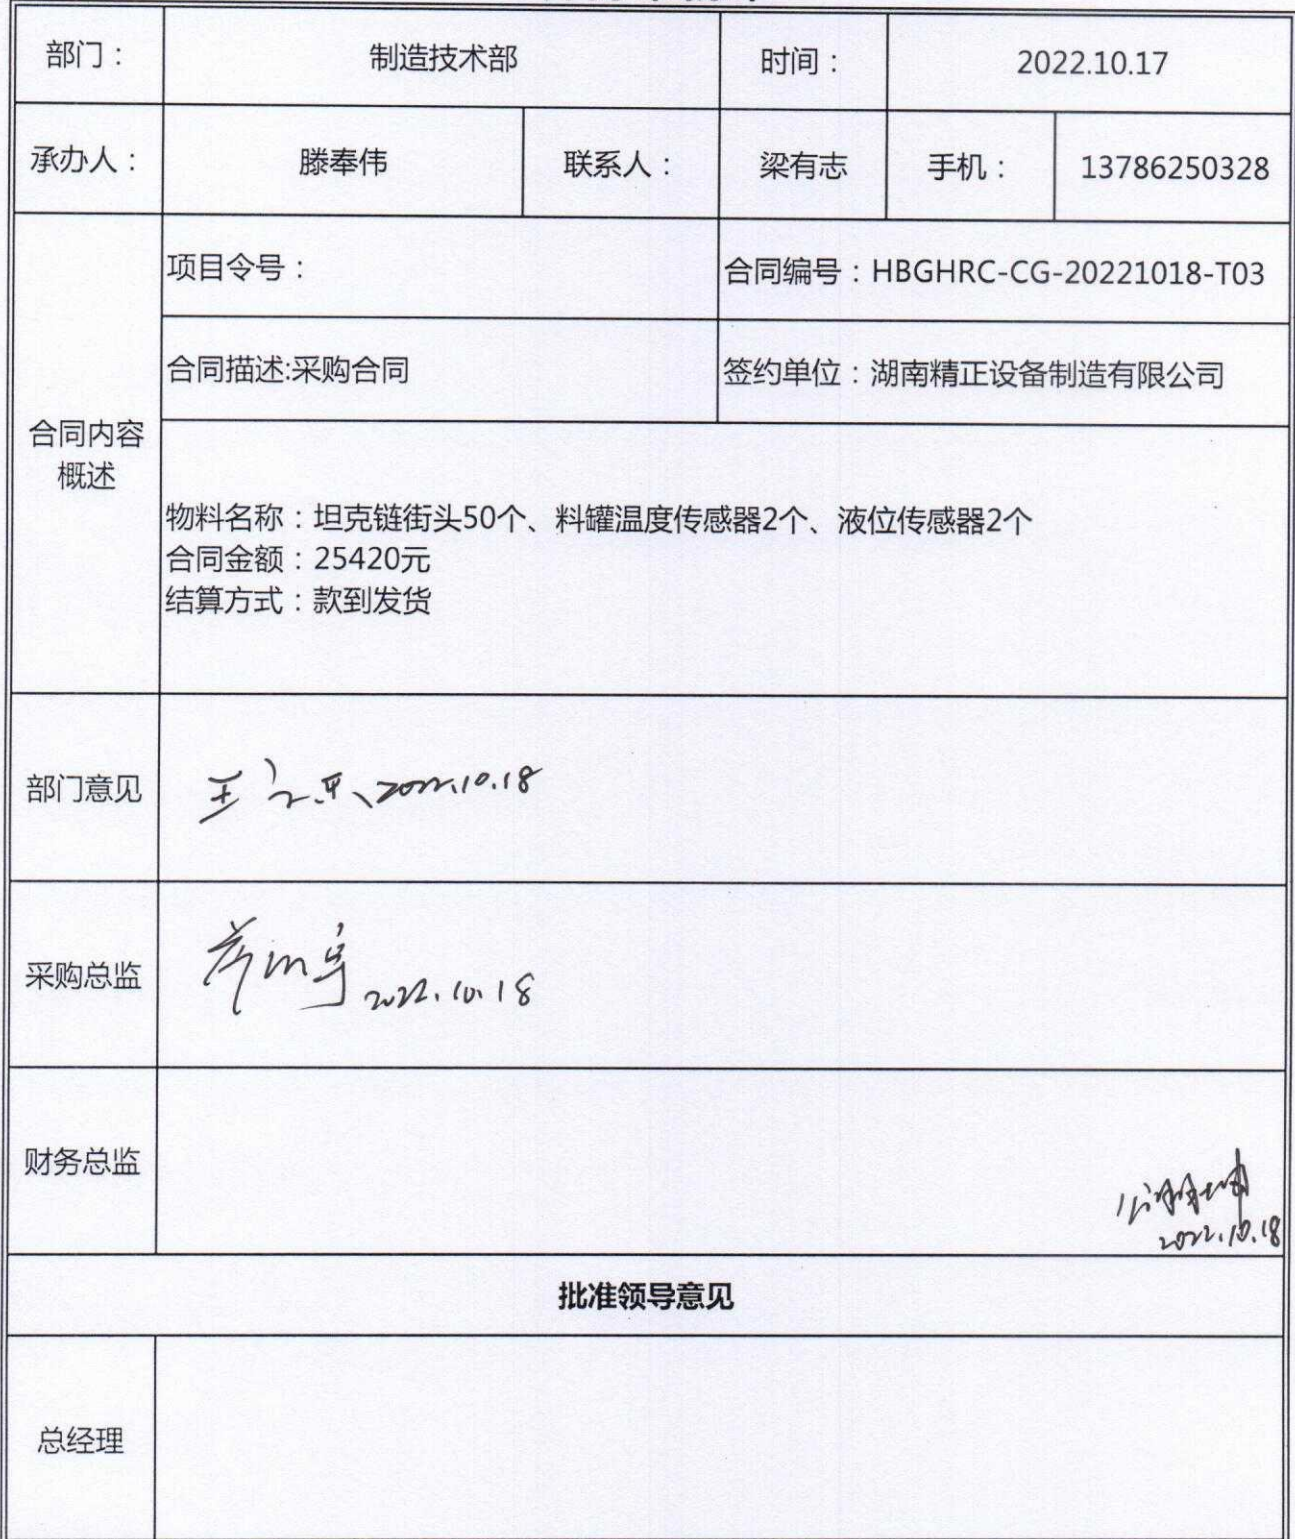 部门： 制造技术部 时间： 2022.10.17
承办人： 滕奉伟 联系人： 梁有志 手机： 13786250328
项目令号： 合同编号：HBGHRC-CG-20221018-T03
合同描述:采购合同 签约单位：湖南精正设备制造有限公司
合同内容
概述
物料名称：坦克链街头50个、料罐温度传感器2个、液位传感器2个
合同金额：25420元
结算方式：款到发货
部门意见 2022.10.18
采购总监 2022.10.18
财务总监
2022.10.18
批准领导意见
总经理